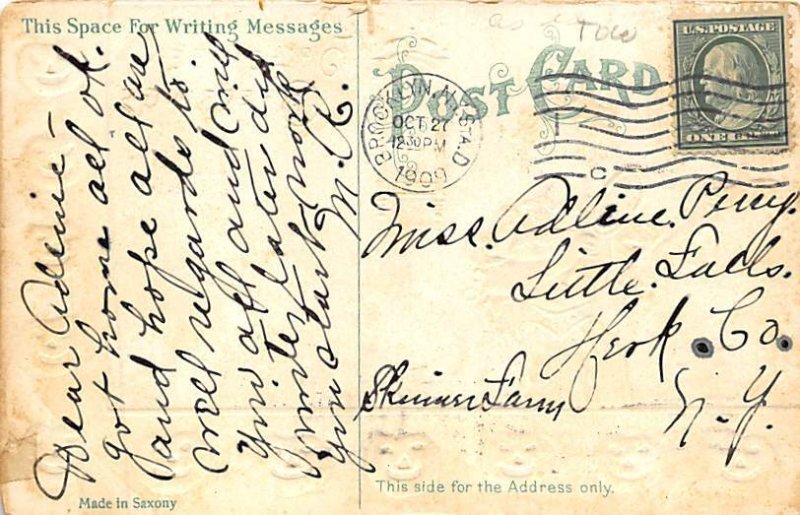 This Space For Writing Messages
Dear Adenie –
got home all ok.
and hope all are
well regards to
you all and will
write later did
you start
M. R.
Made in Saxony
POST CARD
BROOKLYN, N.Y. STA. D
OCT 27
12:30 PM
1909
C
U.S. POSTAGE
ONE CENT
Miss. Adline. Perry.
Little. Falls.
Herk. Co.
Skinner Farm
N. Y.
This side for the Address only.